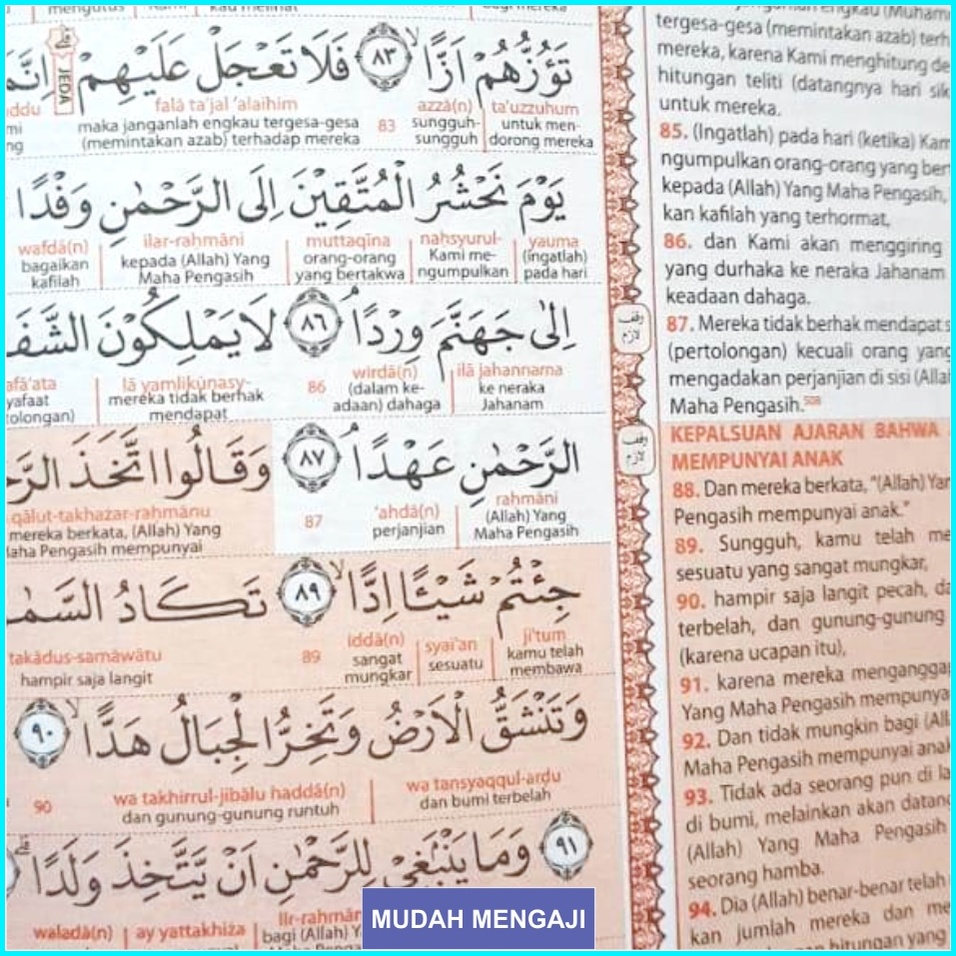 تَؤُزُّهُمْ اَزًّا ۙ ﴿٨٣﴾ فَلَا تَعْجَلْ عَلَيْهِمْ ۗ اِنَّمَا
JEDA
ta'uzzuhum azzā(n) falā ta'jal 'alaihim
untuk men-dorong mereka sungguh-sungguh 83 maka janganlah engkau tergesa-gesa (memintakan azab) terhadap mereka
يَوْمَ نَحْشُرُ الْمُتَّقِيْنَ اِلَى الرَّحْمٰنِ وَفْدًا
yauma naḥsyurul- muttaqīna ilar-raḥmāni wafdā(n)
(ingatlah) pada hari Kami me-ngumpulkan orang-orang yang bertakwa kepada (Allah) Yang Maha Pengasih bagaikan kafilah
اِلٰى جَهَنَّمَ وِرْدًا ۘ ﴿٨٦﴾ لَا يَمْلِكُوْنَ الشَّفَ
ilā jahannama wirdā(n) lā yamlikūnasy- afā'ata
ke neraka Jahanam (dalam ke-adaan) dahaga 86 mereka tidak berhak mendapat yafaat tolongan)
الرَّحْمٰنِ عَهْدًا ۘ ﴿٨٧﴾ وَقَالُوا اتَّخَذَ الرَّحْ
raḥmāni 'ahdā(n) qālut-takhażar-raḥmānu
(Allah) Yang Maha Pengasih perjanjian 87 mereka berkata, (Allah) Yang Maha Pengasih mempunyai
جِئْتُمْ شَيْـًٔا اِدًّا ۙ ﴿٨٩﴾ تَكَادُ السَّمٰ
ji'tum syai'an iddā(n) takādus-samāwātu
kamu telah membawa sesuatu sangat mungkar 89 hampir saja langit
وَتَنْشَقُّ الْاَرْضُ وَتَخِرُّ الْجِبَالُ هَدًّا ۙ ﴿٩٠﴾
wa tansyaqqul-arḍu wa takhirrul-jibālu haddā(n)
dan bumi terbelah dan gunung-gunung runtuh 90
﴿٩١﴾ وَمَا يَنْۢبَغِيْ لِلرَّحْمٰنِ اَنْ يَّتَّخِذَ وَلَدًا ۗ
lir-raḥmān ay yattakhiża waladā(n)
bagi (Allah) Y
tergesa-gesa (memintakan azab) terh
mereka, karena Kami menghitung de
hitungan teliti (datangnya hari sik
untuk mereka.
85. (Ingatlah) pada hari (ketika) Kam
ngumpulkan orang-orang yang ber
kepada (Allah) Yang Maha Pengasih,
kan kafilah yang terhormat,
86. dan Kami akan menggiring
yang durhaka ke neraka Jahanam
keadaan dahaga.
87. Mereka tidak berhak mendapat s
(pertolongan) kecuali orang yang
mengadakan perjanjian di sisi (Alla
Maha Pengasih.
KEPALSUAN AJARAN BAHWA
MEMPUNYAI ANAK
88. Dan mereka berkata, “(Allah) Yan
Pengasih mempunyai anak.”
89. Sungguh, kamu telah me
sesuatu yang sangat mungkar,
90. hampir saja langit pecah, da
terbelah, dan gunung-gunung
(karena ucapan itu),
91. karena mereka menganggap
Yang Maha Pengasih mempunya
92. Dan tidak mungkin bagi (All
Maha Pengasih mempunyai anak
93. Tidak ada seorang pun di la
di bumi, melainkan akan datang
(Allah) Yang Maha Pengasih
seorang hamba.
94. Dia (Allah) benar-benar telah
kan jumlah mereka dan me
hitungan yang
MUDAH MENGAJI